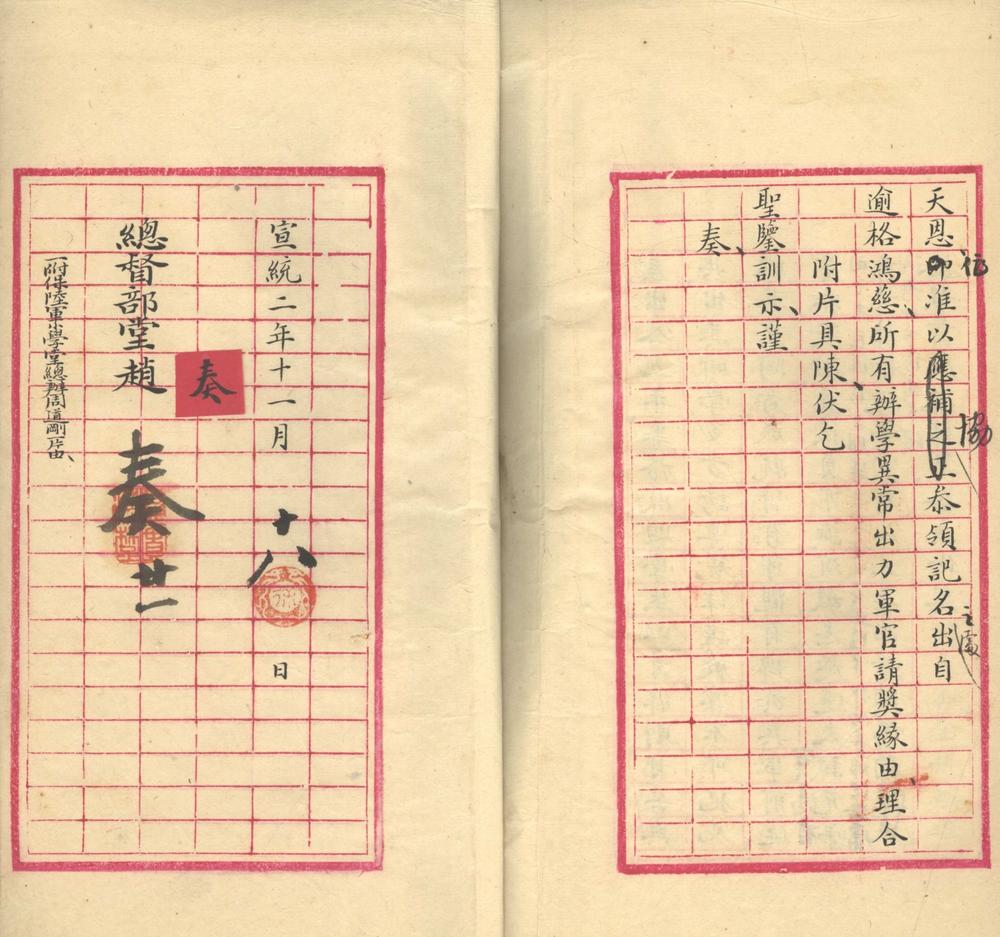 天恩仰准以應補之正叅領記名出自
協
之處
逾格鴻慈所有辦學異常出力軍官請奬緣由理合
附片具陳伏乞
聖鑒訓示謹
奏
宣統二年十一月十八日
奏
總督部堂趙
奏
廿一
一附保陸軍小學堂總辦周道剛一片由